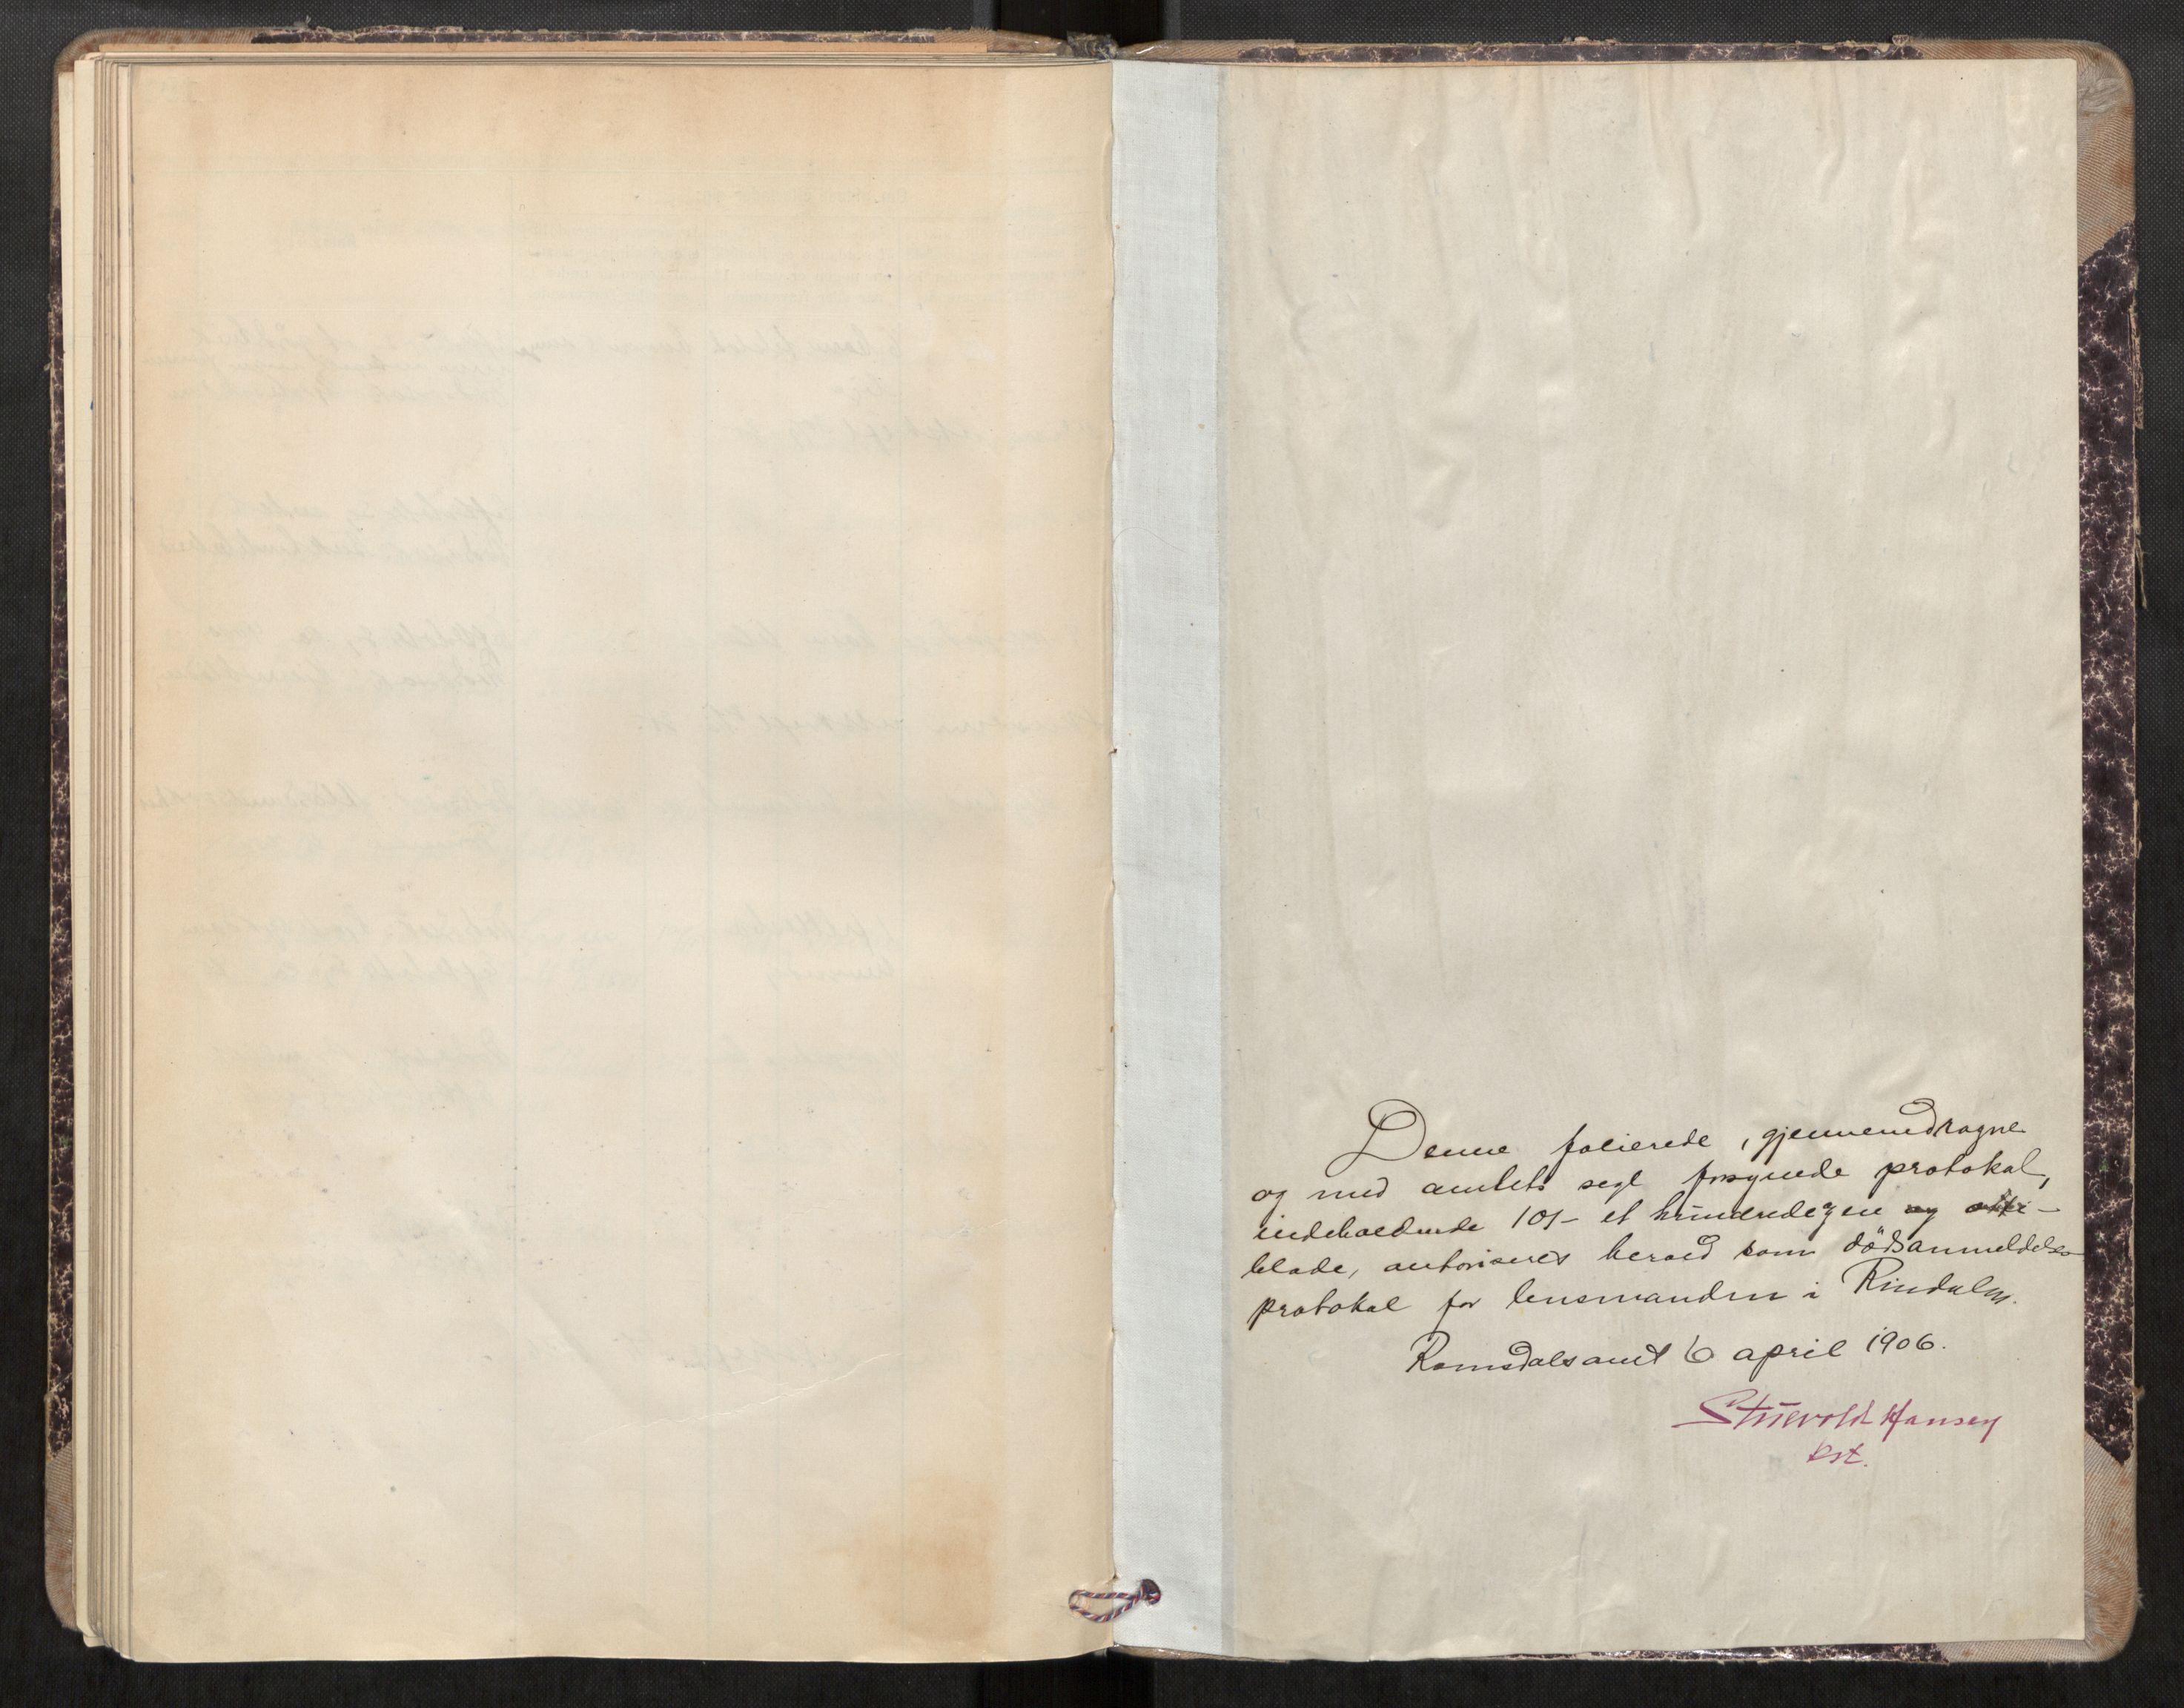 Denne folierede, gjennemdragne
og med amtets segl forsynede protokol,
indeholdende 101 - et hundredeogen
blade, autoriseres herved som dødsanmeldelses
protokol for lensmanden i Rindalen.
Romsdals amt 6 april 1906.
Hansen
kst.